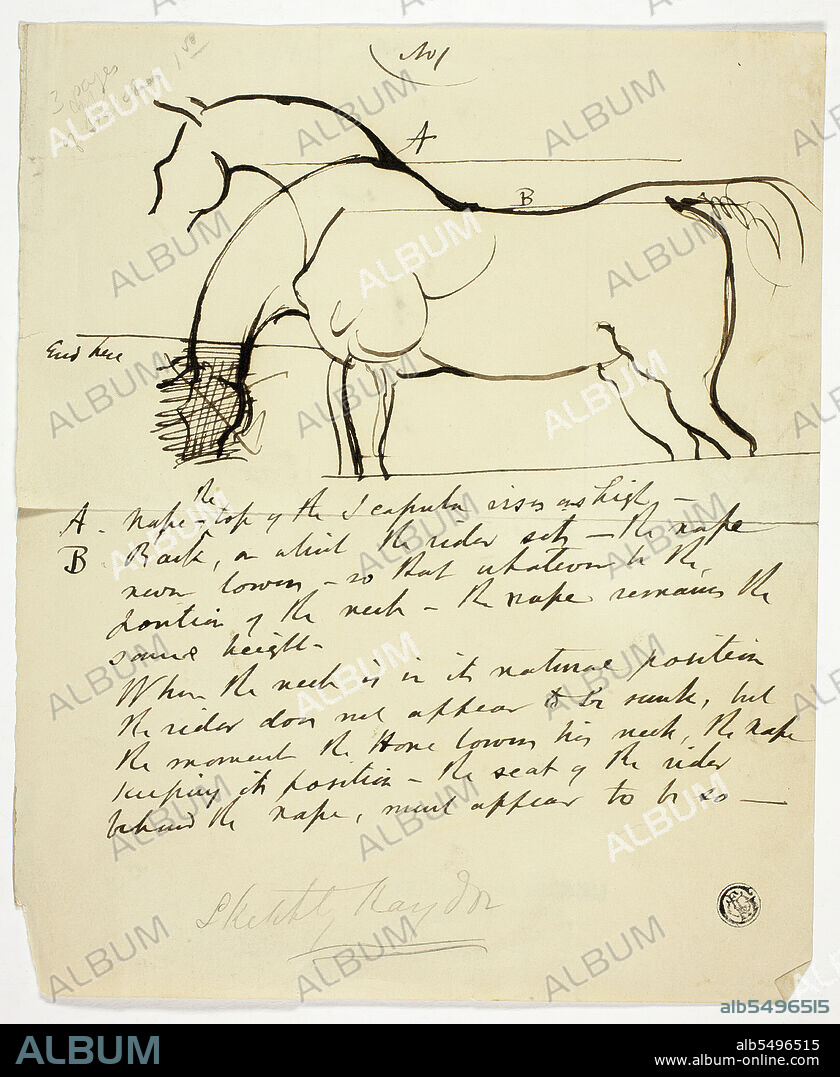 No 1
3 pages
of
A
B
End here
the
A - Nape - top of the Scapula rises as high -
B Back, on which the rider sits - the nape
never lowers - so that whatever be the
position of the neck - the nape remains the
same height -
When the neck is in its natural position
the rider does not appear to be sunk, but
the moment the Horse lowers his neck, the nape
keeping its position - the seat of the rider
behind the nape, must appear to be so -
Sketch by Haydon
alb5496515
ALBUM
alb5496515
www.album-online.com